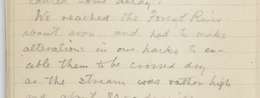 caused some delay.
We reached the Forest River
about noon and had to make
alterations in our packs to en-
able them to be crossed dry
as the stream was rather high
and about